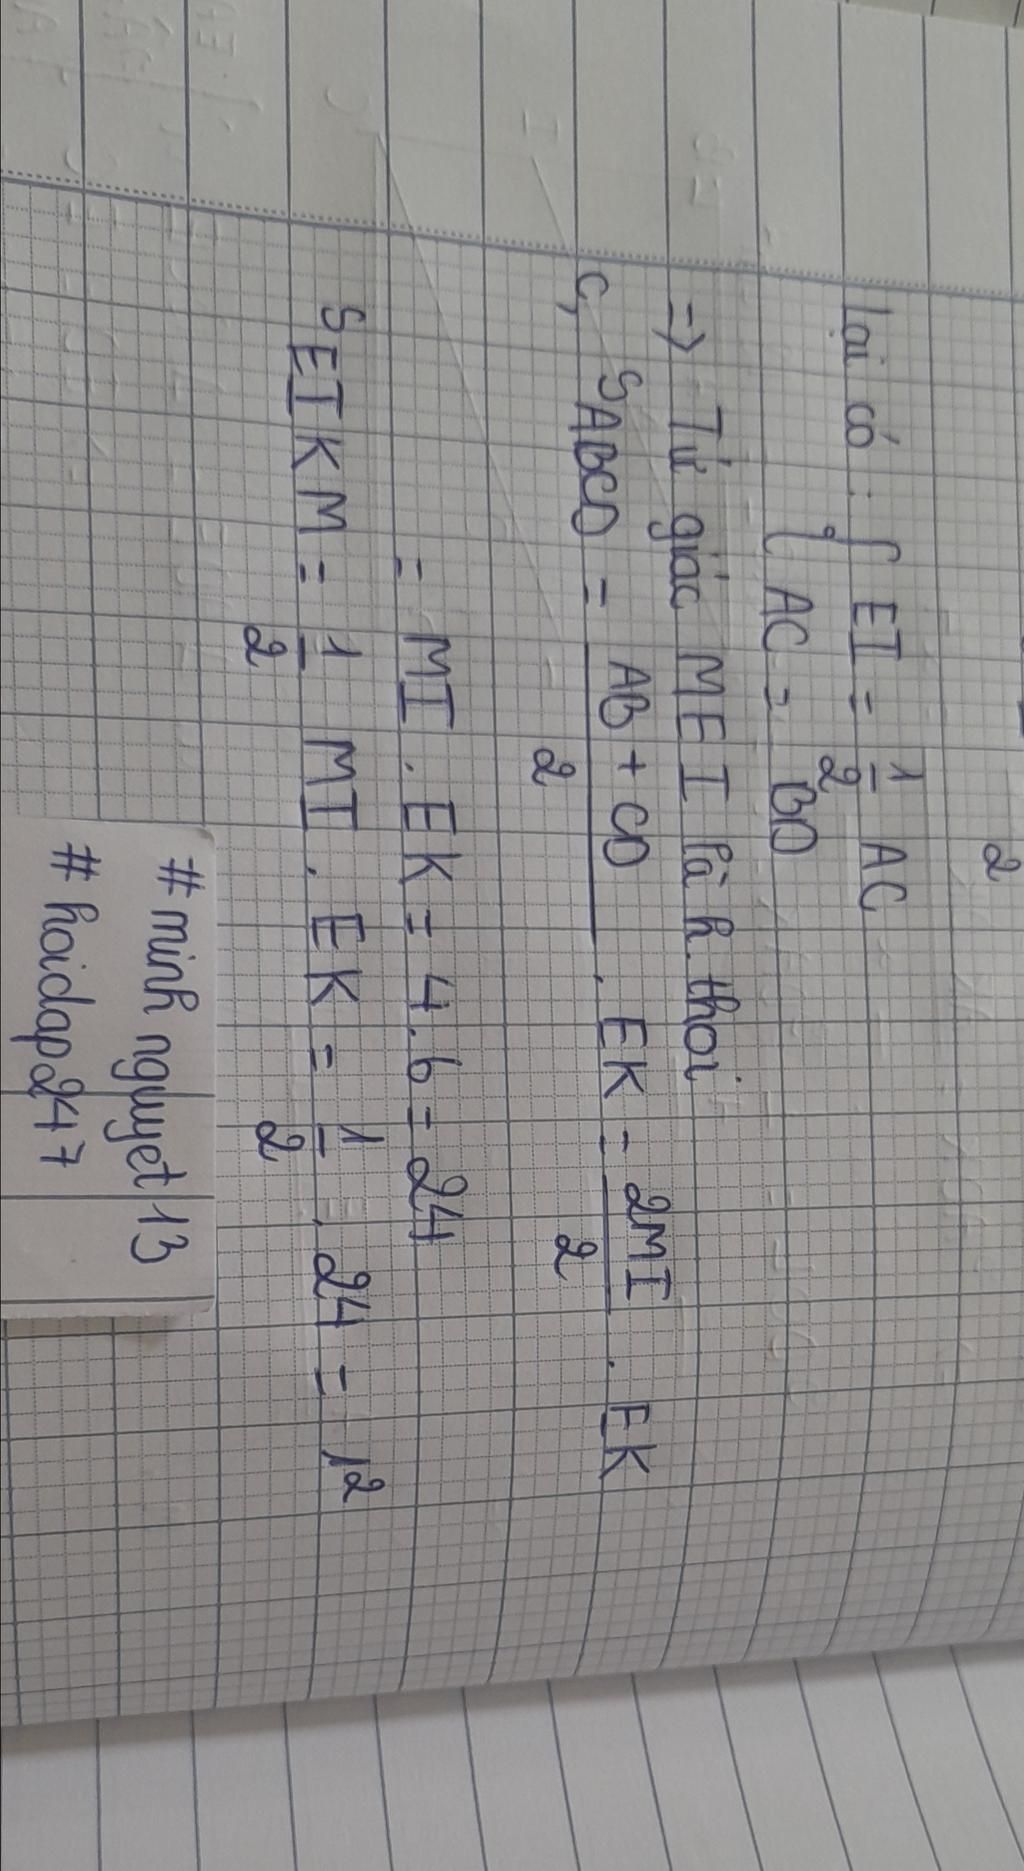 2
Lại có : { EI = 1/2 AC
{ AC = BD
=> Tứ giác MEI là h.thoi
c, SABCD = AB + CD / 2 . EK = 2MI / 2 . EK
= MI . EK = 4 . 6 = 24
SEIKM = 1/2 MI . EK = 1/2 . 24 = 12
# minh nguyet 13
# hoidap247